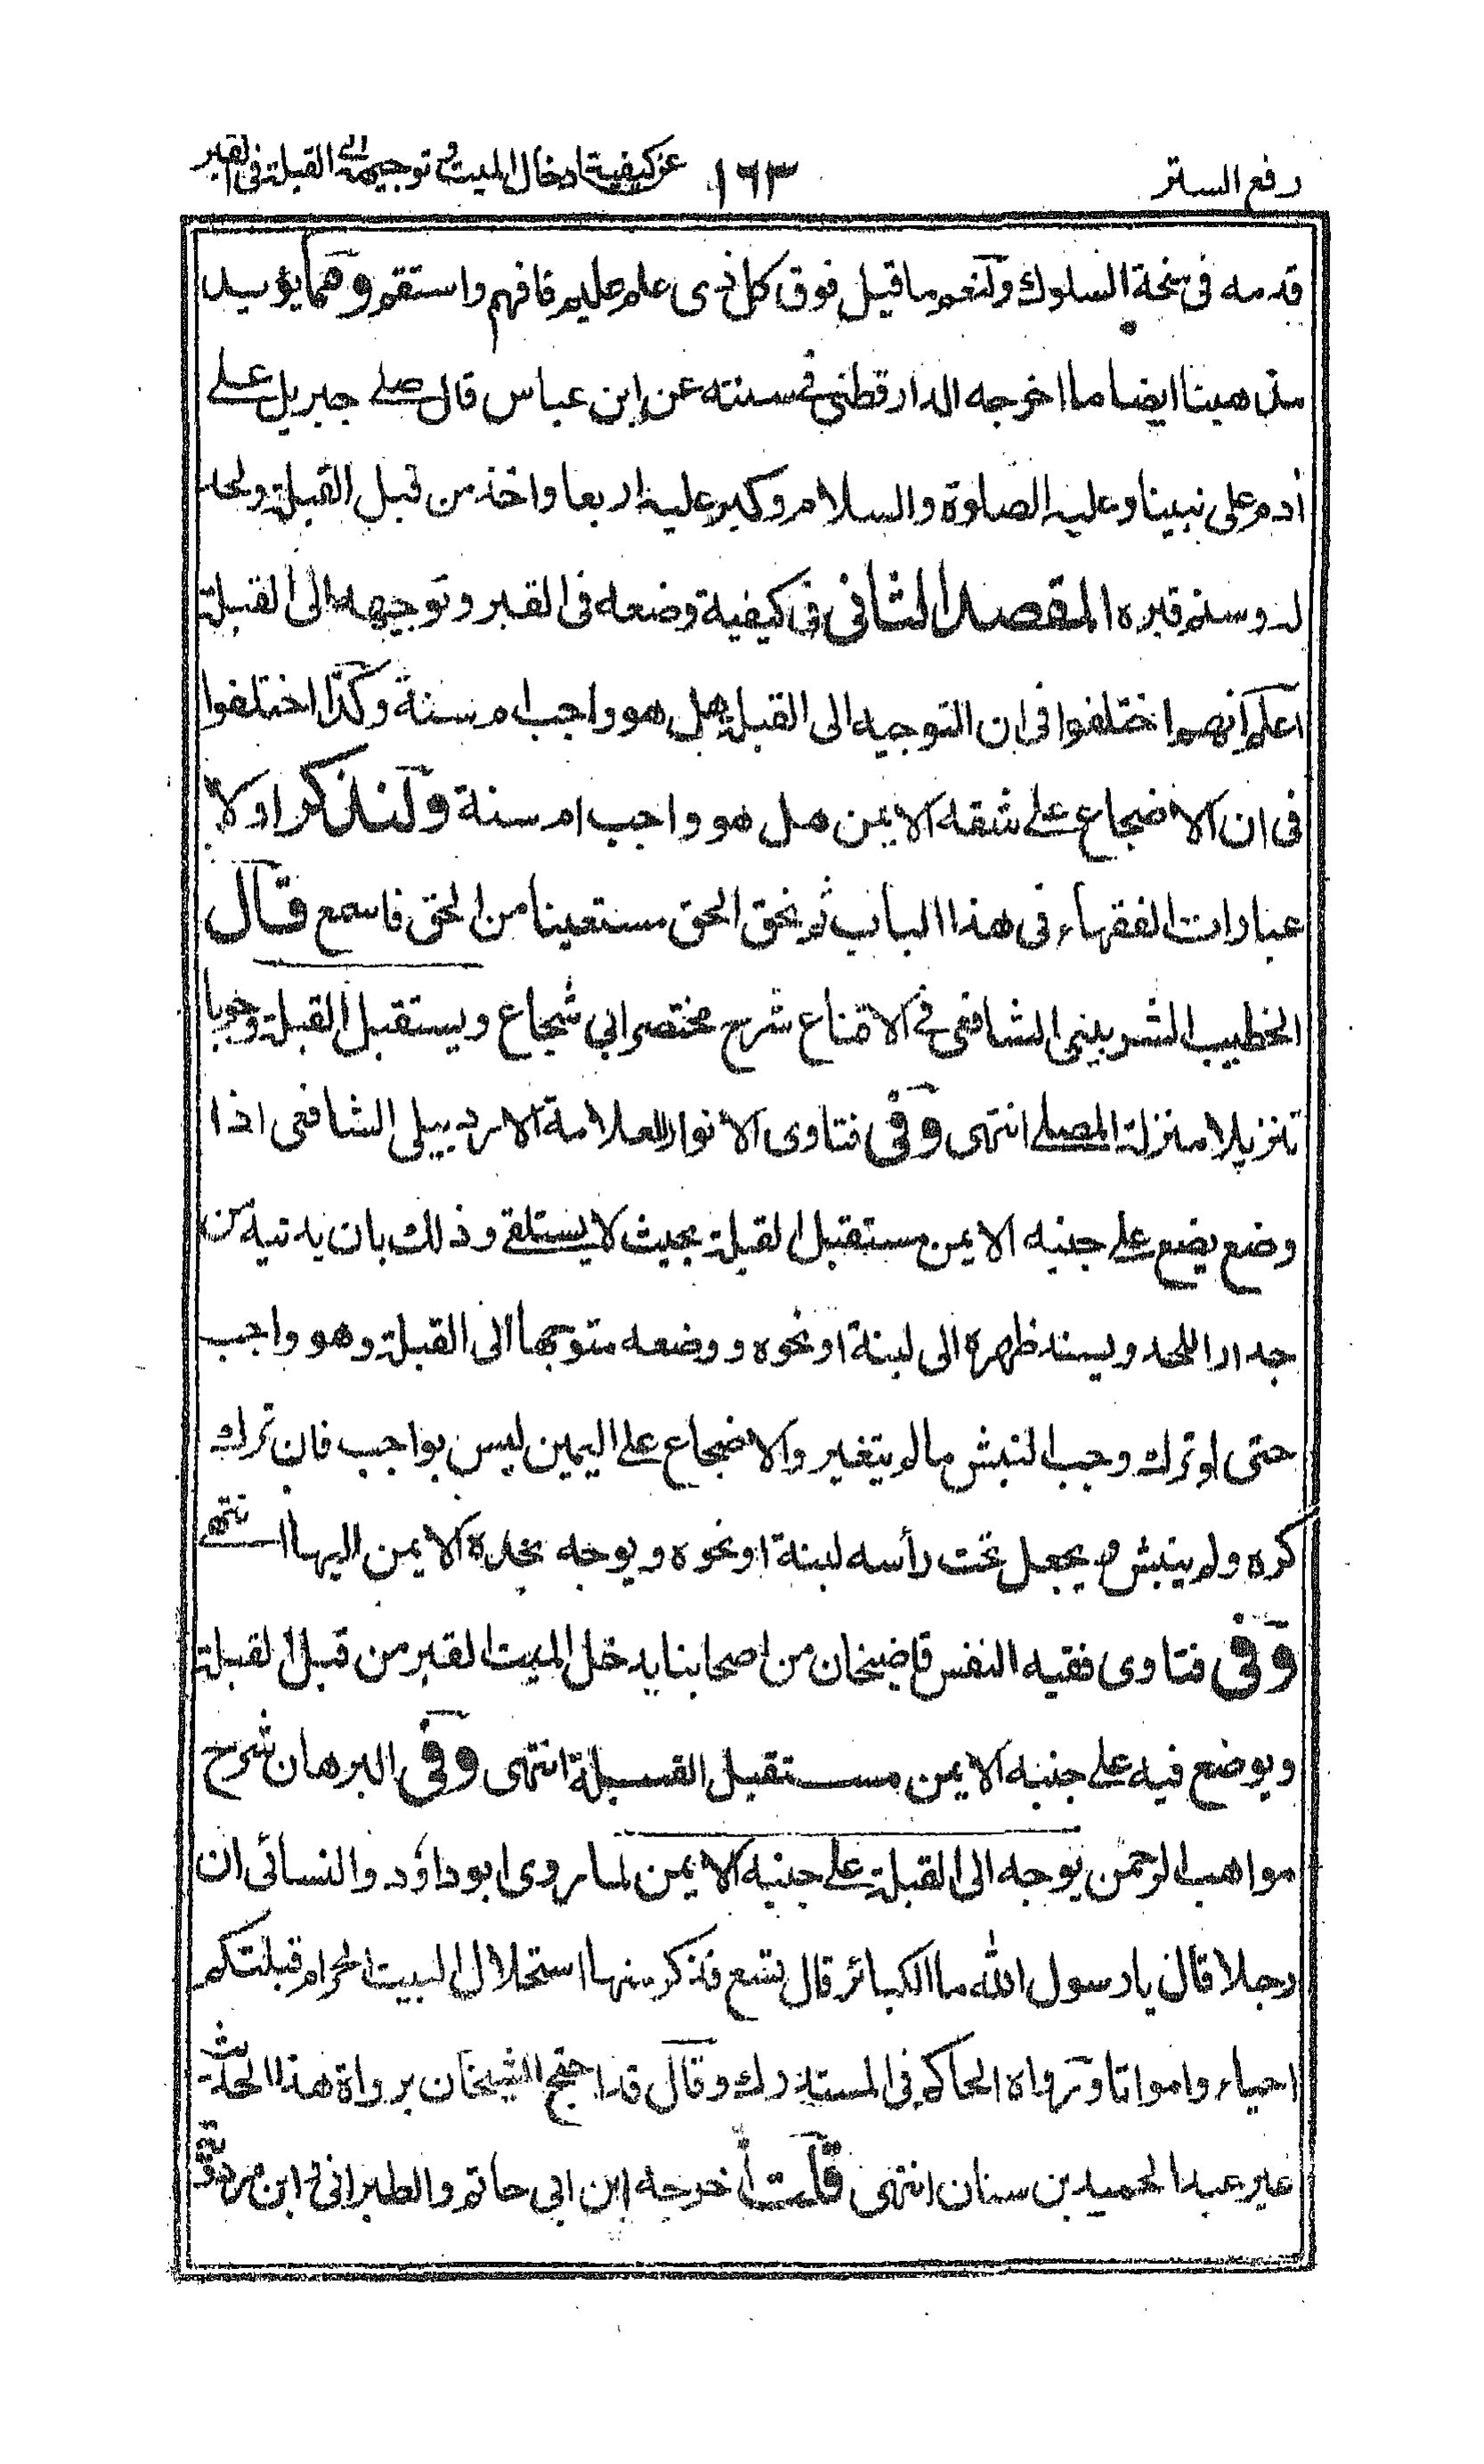 رفع الستر ١٦٣ عن كيفية ادخال الميت و توجيهه الى القبلة فى القبر
قدمه فى تحفة السلوك ولنعم ما قيل فوق كل ذى علم عليم فافهم واستقم ومما يؤيد
مذهبنا ايضا ما اخرجه الدارقطنى فى سننه عن ابن عباس قال صلى جبريل على
أدم على نبينا وعليه الصلوة والسلام وكبر عليه اربعا واخذ من قبل القبلة ولحد
له وسنم قبره المقصد الثانى فى كيفية وضعه فى القبر وتوجيهه الى القبلة
اعلم أنهم اختلفوا فى ان التوجيه الى القبلة هل هو واجب ام سنة وكذا اختلفوا
فى ان الاضجاع على شقه الايمن هل هو واجب ام سنة ولنذكر اولا
عبارات الفقهاء فى هذا الباب ثم نحق الحق مستعينا من الحق فاسمع قال
الخطيب الشربينى الشافعى فى الاقناع شرح مختصر ابي شجاع ويستقبل القبلة وجوبا
تنزيلا منزلة المصلى انتهى وفى فتاوى الانوار للعلامة الاردبيلى الشافعى اذا
وضع يضع على جنبه الايمن مستقبل القبلة بحيث لا يستلقى وذلك بان يدنيه من
جدار اللحد ويسند ظهره الى لبنة او نحوه ووضعه متوجها الى القبلة وهو واجب
حتى لو ترك وجب النبش ما لم يتغير والاضجاع على اليمين ليس بواجب فان ترك
كره ولم ينبش ويجعل تحت رأسه لبنة او نحوه ويوجه بخده الايمن اليها انتهى
وفى فتاوى فقيه النفس قاضيخان من اصحابنا يدخل الميت القبر من قبل القبلة
ويوضع فيه على جنبه الايمن مستقبل القبلة انتهى وفى البرهان شرح
مواهب الرحمن يوجه الى القبلة على جنبه الايمن لما روى ابو داؤد والنسائى ان
رجلا قال يا رسول الله ما الكبائر قال تسع فذكر منها استحلال البيت الحرام قبلتكم
احياء وامواتا ورواه الحاكم فى المستدرك وقال قد احتج الشيخان برواة هذا الحديث
غير عبد الحميد بن سنان انتهى قلت أخرجه ابن ابي حاتم والطبرانى و ابن مردويه